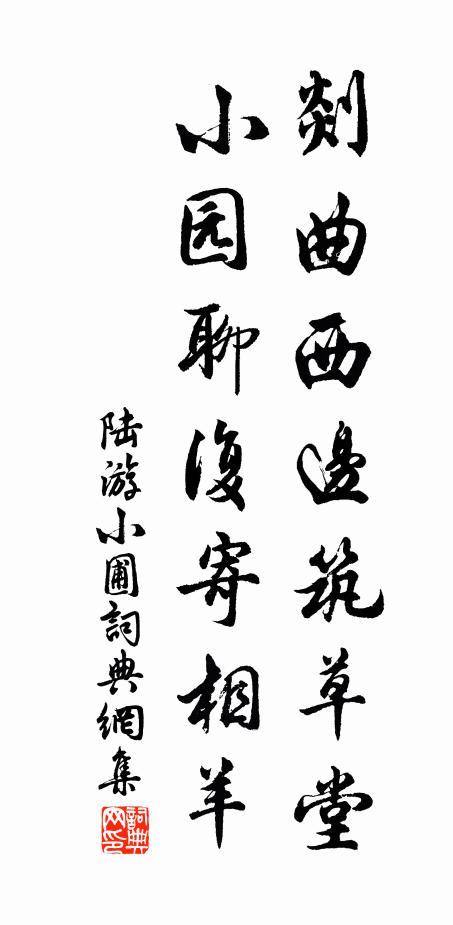 剡曲西邊筑草堂
小园聊復寄相羊
陆游小圃詞典網集
詞典网印